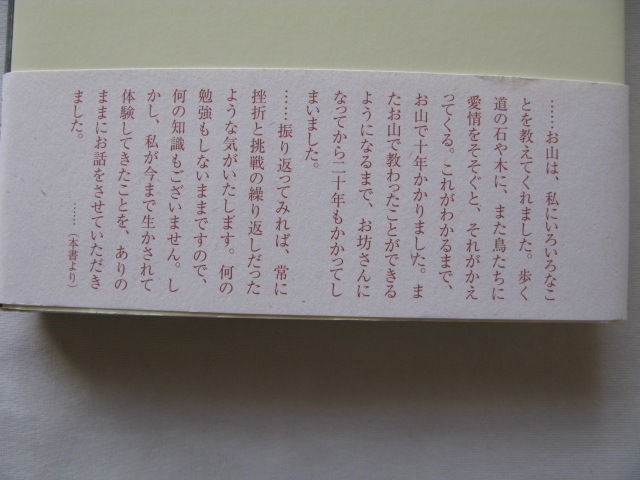 ……お山は、私にいろいろなこ
とを教えてくれました。歩く
道の石や木に、また鳥たちに
愛情をそそぐと、それがかえ
ってくる。これがわかるまで、
お山で十年かかりました。ま
たお山で教わったことができる
ようになるまで、お坊さんに
なってから二十年もかかってし
まいました。
……振り返ってみれば、常に
挫折と挑戦の繰り返しだった
ような気がいたします。何の
勉強もしないままですので、
何の知識もございません。し
かし、私が今まで生かされて
体験してきたことを、ありの
ままにお話をさせていただき
ました。 ……(本書より)